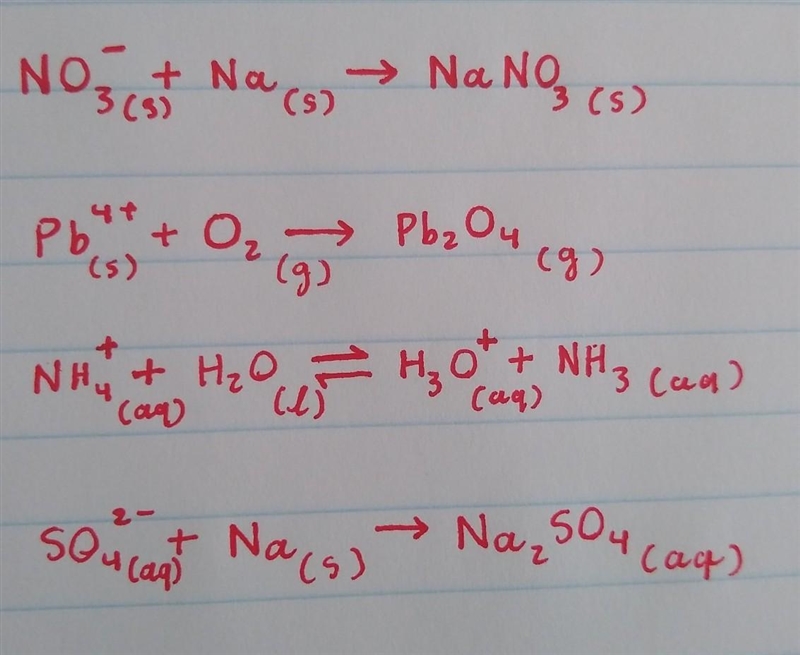 NO₃⁻(s) + Na(s) → NaNO₃(s)
Pb⁴⁺(s) + O₂(g) → Pb₂O₄(g)
NH₄⁺(aq) + H₂O(l) ⇌ H₃O⁺(aq) + NH₃(aq)
SO₄²⁻(aq) + Na(s) → Na₂SO₄(aq)